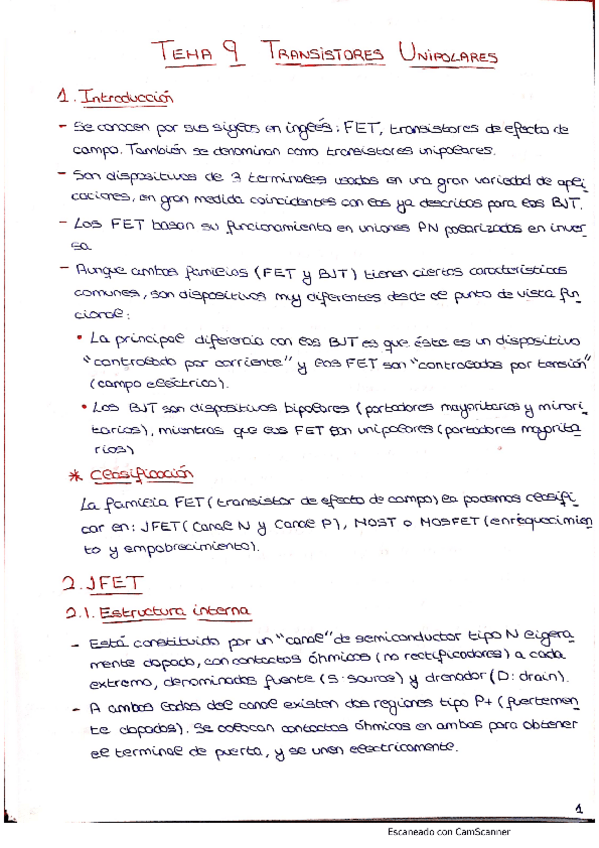 TEMA 9 TRANSISTORES UNIPOLARES
1. Introducción
- Se conocen por sus siglas en inglés: FET, transistores de efecto de
campo. También se denominan como transistores unipolares.
- Son dispositivos de 3 terminales usados en una gran variedad de apli
caciones, en gran medida coincidentes con los ya descritos para los BJT.
- Los FET basan su funcionamiento en uniones PN polarizados en inver
sa.
- Aunque ambas familias (FET y BJT) tienen ciertas características
comunes, son dispositivos muy diferentes desde el punto de vista fun
cional:
• La principal diferencia con los BJT es que éste es un dispositivo
"controlado por corriente" y los FET son "controlados por tensión"
(campo eléctrico).
• Los BJT son dispositivos bipolares (portadores mayoritarios y minori
tarios), mientras que los FET son unipolares (portadores mayorita
rios)
* Clasificación
La familia FET (transistor de efecto de campo) la podemos clasifi
car en: JFET (Canal N y Canal P), MOST o MOSFET (enriquecimien
to y empobrecimiento).
2. JFET
2.1. Estructura interna
- Está constituido por un "canal" de semiconductor tipo N ligera
mente dopado, con contactos óhmicos (no rectificadores) a cada
extremo, denominados fuente (S: source) y drenador (D: drain).
- A ambos lados del canal existen dos regiones tipo P+ (fuertemen
te dopados). Se colocan contactos óhmicos en ambas para obtener
el terminal de puerta, y se unen eléctricamente.
1
Escaneado con CamScanner